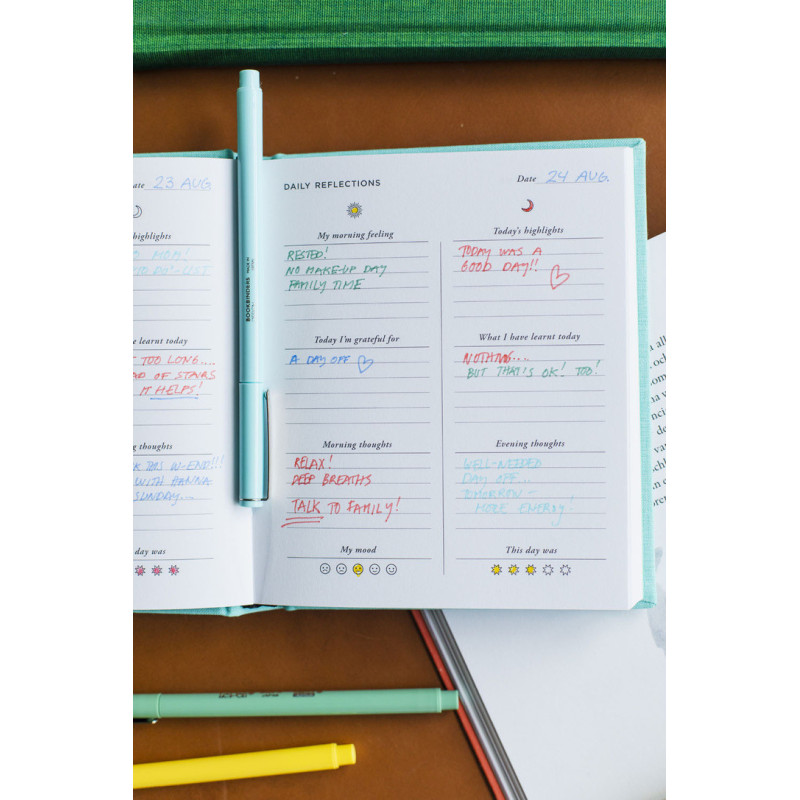 ate 23 AUG.
highlights
MOM!
TO DO-LIST
e learnt today
T TOO LONG....
OF STAIRS
IT HELPS!
g thoughts
W-END!!!
WITH HANNA
SUNDAY...
day was
BOOKBINDERS
DAILY REFLECTIONS
My morning feeling
RESTED!
NO MAKE-UP DAY
FAMILY TIME
Today I'm grateful for
A DAY OFF
Morning thoughts
RELAX!
DEEP BREATHS
TALK TO FAMILY!
My mood
Date 24 AUG.
Today's highlights
TODAY WAS A
GOOD DAY!!
What I have learnt today
NOTHING....
BUT THAT'S OK! TOO!
Evening thoughts
WELL-NEEDED
DAY OFF...
TOMORROW -
MORE ENERGY!
This day was